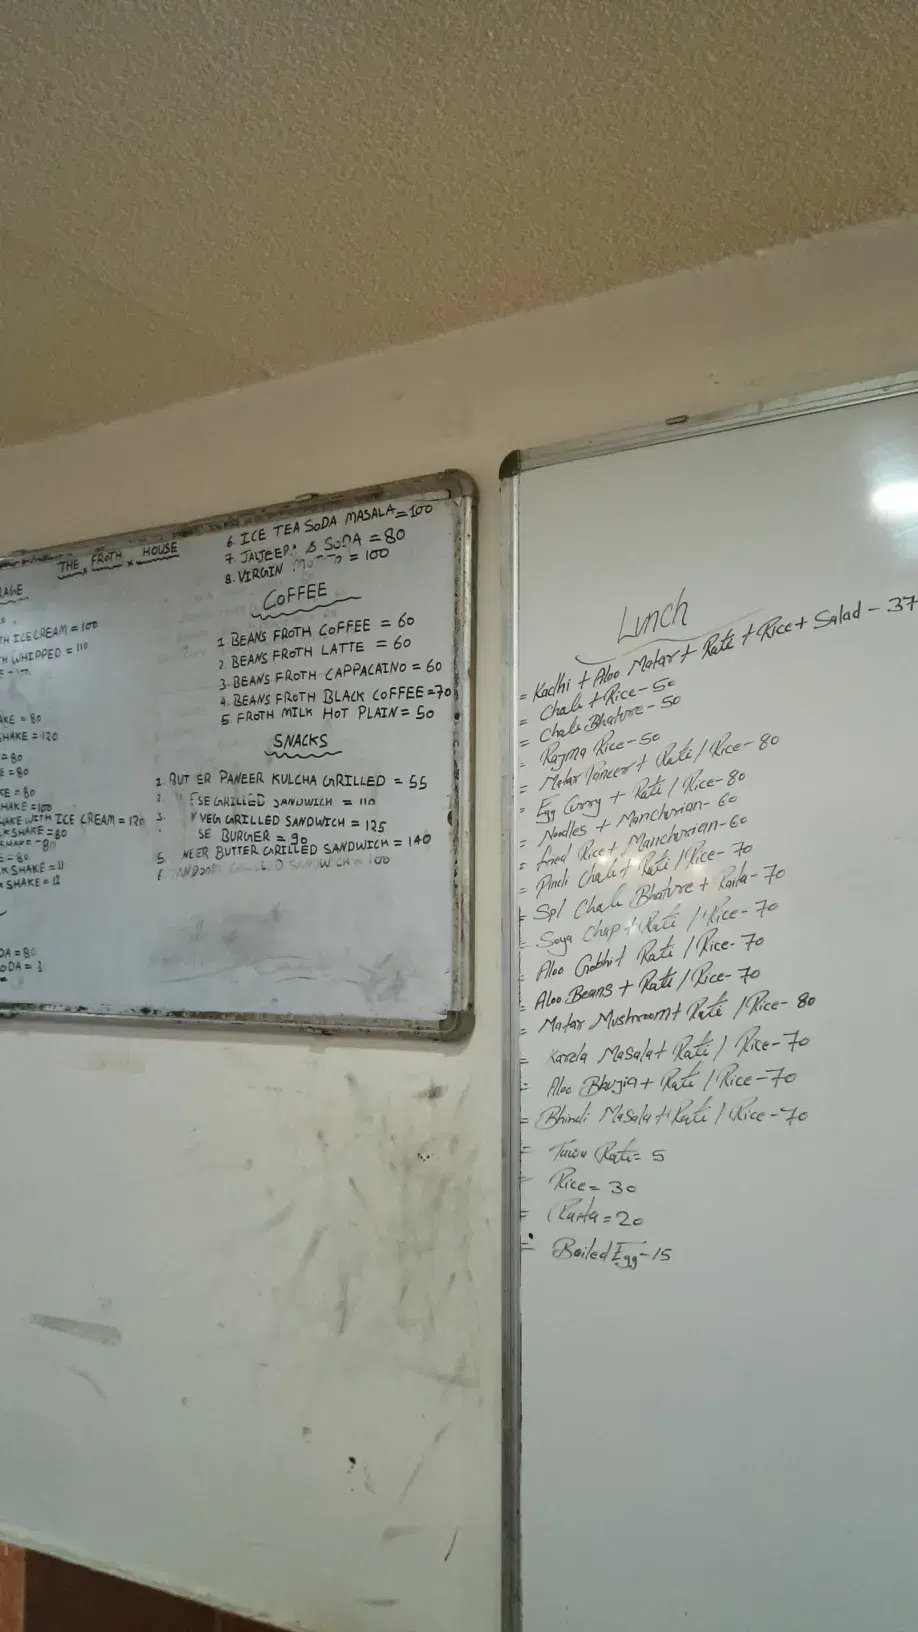 THE FROTH HOUSE
RAGE
TH ICECREAM = 100
TH WHIPPED = 110
AKE = 80
SHAKE = 120
= 80
E = 80
KE = 80
HAKE = 100
HAKE WITH ICE CREAM = 120
LKSHAKE = 80
= 80
E = 80
K SHAKE = 11
K SHAKE = 12
DA = 80
ODA =
6. ICE TEA SODA MASALA = 100
7. JALJEER & SODA = 80
8. VIRGIN = 100
COFFEE
1. BEANS FROTH COFFEE = 60
2. BEANS FROTH LATTE = 60
3. BEANS FROTH CAPPACAINO = 60
4. BEANS FROTH BLACK COFFEE = 70
5. FROTH MILK HOT PLAIN = 50
SNACKS
1. BUT ER PANEER KULCHA GRILLED = 55
2. ESE GRILLED SANDWICH = 110
3. VEG GRILLED SANDWICH = 125
SE BURGER = 90
5. NEER BUTTER GRILLED SANDWICH = 140
6. GRILLED SANDWICH = 100
Lunch
= Kadhi + Aloo Matar + Rati + Rice + Salad - 37
= Chale + Rice - 50
= Chale Bhature - 50
= Rajma Rice - 50
= Matar Paneer + Rati / Rice - 80
= Egg Curry + Rati / Rice - 80
= Noodles + Manchurian - 60
= fried Rice + Manchurian - 60
= Pindi Chale + Rati / Rice - 70
= Spl Chale Bhature + Raita - 70
= Soya Chap + Rati / Rice - 70
= Aloo Gobhi + Rati / Rice - 70
= Aloo Beans + Rati / Rice - 70
= Matar Mushroom + Rati / Rice - 80
= Karela Masala + Rati / Rice - 70
= Aloo Bhujia + Rati / Rice - 70
= Bhindi Masala + Rati / Rice - 70
= Tawa Rati = 5
= Rice = 30
= Raita = 20
= Boiled Egg - 15